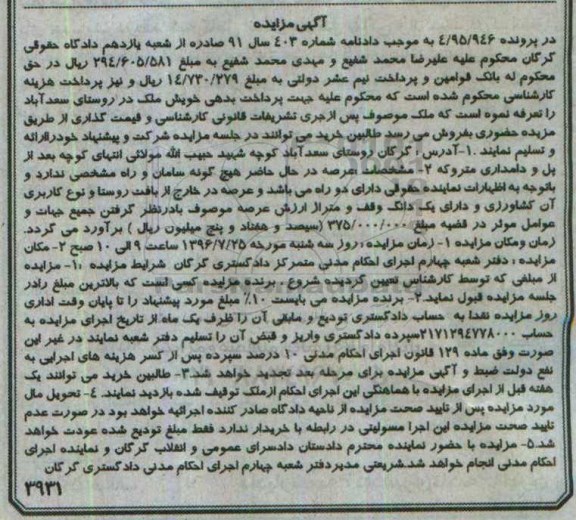 آگهی مزایده
در پرونده ۴/۹۵/۹۴۶ به موجب دادنامه شماره ۴۰۳ سال ۹۱ صادره از شعبه یازدهم دادگاه حقوقی
گرگان محکوم علیه علیرضا محمد شفیع و میدی محمد شفیع به مبلغ ۲۹۴/۶۰۵/۵۸۱ ریال در حق
محکوم له بانک قوامین و پرداخت نیم عشر دولتی به مبلغ ۱۴/۷۳۰/۲۷۹ ریال و نیز پرداخت هزینه
کارشناسی محکوم شده است که محکوم علیه جهت پرداخت بدهی خویش ملک در روستای سعدآباد
را تعرفه نموه است که ملک موصوف پس ازجری تشریفات قانونی کارشناسی و قیمت گذاری از طریق
مزیده حضوری بفروش می رسد طالبین خرید می توانند در جلسه مزایده شرکت و پیشنهاد خودراارائه
و تسلیم نمایند .۱-آدرس : گرگان روستای سعدآباد کوچه شهید حبیب الله مولائی انتهای کوچه بعد از
پل و دامداری متروکه ۲-مشخصات عرصه در حال حاضر هیچ گونه سامان و راه مشخصی ندارد و
باتوجه به اظهارات نماینده حقوقی دارای دو راه می باشد و عرصه در خارج از بافت روستا و نوع کاربری
آن کشاورزی و دارای یک دانگ وقف و متراژ ارزش عرصه موصوف بادرنظر گرفتن جمیع جهات و
عوامل موثر در قضیه مبلغ ۳۷۵/۰۰۰/۰۰۰ (سیصد و هفتاد و پنج میلیون ریال ) برآورد می گردد.
زمان ومکان مزایده ۱- زمان مزایده :روز سه شنبه مورخه ۱۳۹۶/۷/۲۵ ساعت ۹ الی ۱۰ صبح ۲-مکان
مزایده : دفتر شعبه چهارم اجرای احکام مدنی متمرکز دادگستری گرگان شرایط مزایده :۱- مزایده
از مبلغی که توسط کارشناس تعیین گردیده شروع . برنده مزایده کسی است که بالاترین مبلغ رادر
جلسه مزایده قبول نماید.۲- برنده مزایده می بایست ۱۰٪ مبلغ مورد پیشنهاد را تا پایان وقت اداری
روز مزایده نقدا به حساب دادگستری تودیع و مابقی آن را ظرف یک ماه از تاریخ اجرای مزایده به
حساب ۲۱۷۱۲۹۴۷۷۸۰۰۰سپرده دادگستری واریز و قبض آن را تسلیم دفتر شعبه نمایند در غیر این
صورت وفق ماده ۱۲۹ قانون اجرای احکام مدنی ۱۰ درصد سپرده پس از کسر هزینه های اجرایی به
نفع دولت ضبط و آگهی مزایده برای مرحله بعد تجدید خواهد شد.۳- طالبین خرید می توانند یک
هفته قبل از اجرای مزایده با هماهنگی این اجرای احکام ازملک توقیف شده بازدید نمایند. ۴- تحویل مال
مورد مزایده پس از تایید صحت مزایده از ناحیه دادگاه صادر کننده اجرائیه خواهد بود در صورت عدم
تایید صحت مزایده این اجرا مسولیتی در رابطه با خریدار ندارد فقط مبلغ تودیع شده عودت خواهد
شد.۵- مزایده با حضور نماینده محترم دادستان دادسرای عمومی و انقلاب گرگان و نماینده اجرای
احکام مدنی انجام خواهد شد.شریعتی مدیردفتر شعبه چهارم اجرای احکام مدنی دادگستری گرگان
۳۹۳۱